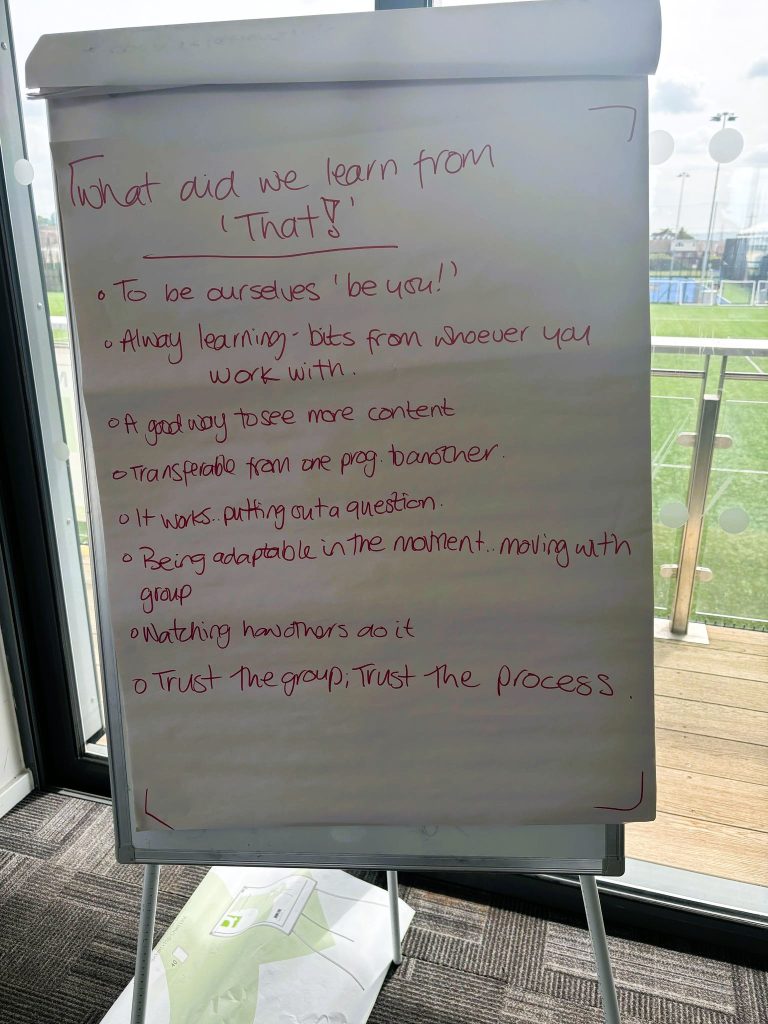 What did we learn from
'That!'
To be ourselves 'be you!'
Alway learning - bits from whoever you
work with.
A good way to see more content
Transferable from one prog. to another.
It works.. putting out a question.
Being adaptable in the moment.. moving with
group
Watching how others do it
Trust the group; Trust the process.